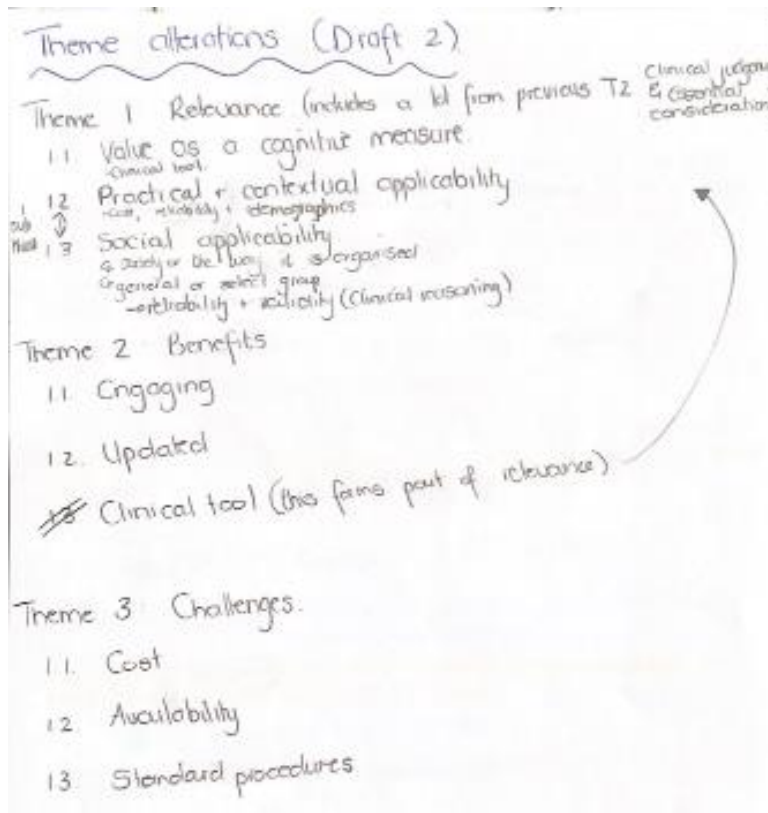 Theme alterations (Draft 2)
Theme 1 Relevance (includes a lot from previous T2 Clinical
& essential
consideration
1.1 Value as a cognitive measure
-Clinical tool.
1.2 Practical + contextual applicability
-Cost, reliability + demographics
1.3 Social applicability
society or the way it is organised
general or select group
reliability + validity (Clinical reasoning)
Theme 2 Benefits
1.1. Engaging
1.2. Updated
1.3 Clinical tool (this forms part of relevance)
Theme 3: Challenges.
1.1. Cost
1.2 Availability
1.3 Standard procedures